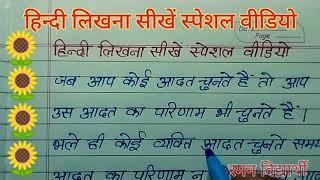 हिन्दी लिखना सीखें स्पेशल वीडियो
Date
Page
हिन्दी लिखना सीखें स्पेशल वीडियो
जब आप कोई आदत चुनते हैं तो आप
उस आदत का परिणाम भी चुनते हैं।
भले ही कोई व्यक्ति आदत चुनते समय
आदत का परिणाम न
रमन विद्यार्थी